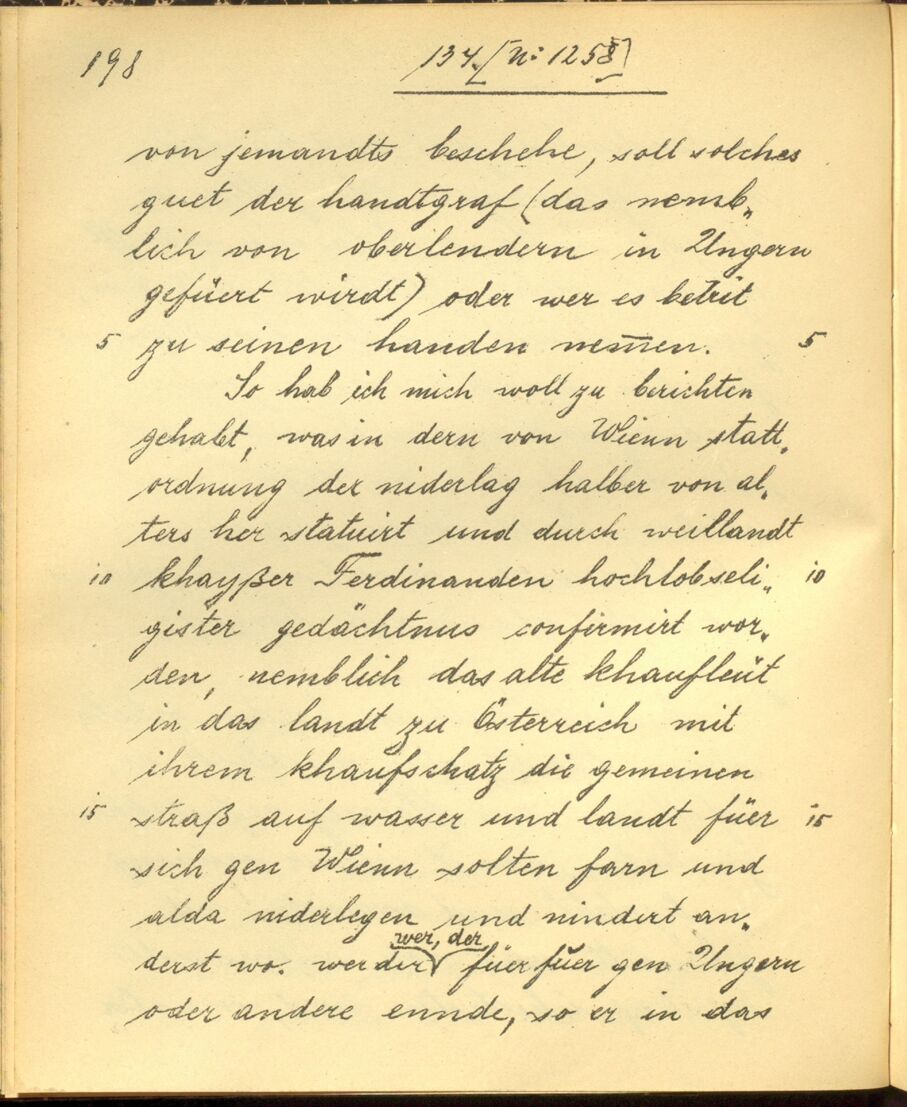 198
134. [N: 1258]
von jemandts beschehe, soll solches
guet der handtgraf (das nemb„
lich von oberlendern in Ungern
gefüert wirdt) oder wer es betrit
5 zu seinen handen nem̅en. 5
So hab ich mich woll zu berichten
gehabt, was in dern von Wienn statt„
ordnung der niderlag halber von al„
ters her statuirt und durch weillandt
10 khayßer Ferdinanden hochlobseli„ 10
gister gedächtnus confirmirt wor„
den, nemblich das alte khaufleüt
in das landt zu Österreich mit
ihrem khaufschatz die gemeinen
15 straß auf wasser und landt füer 15
sich gen Wienn solten farn und
alda niderlegen und nindert an„
wer, der
derst wo. werder füerfüer gen Ungern
oder andere ennde, so er in das